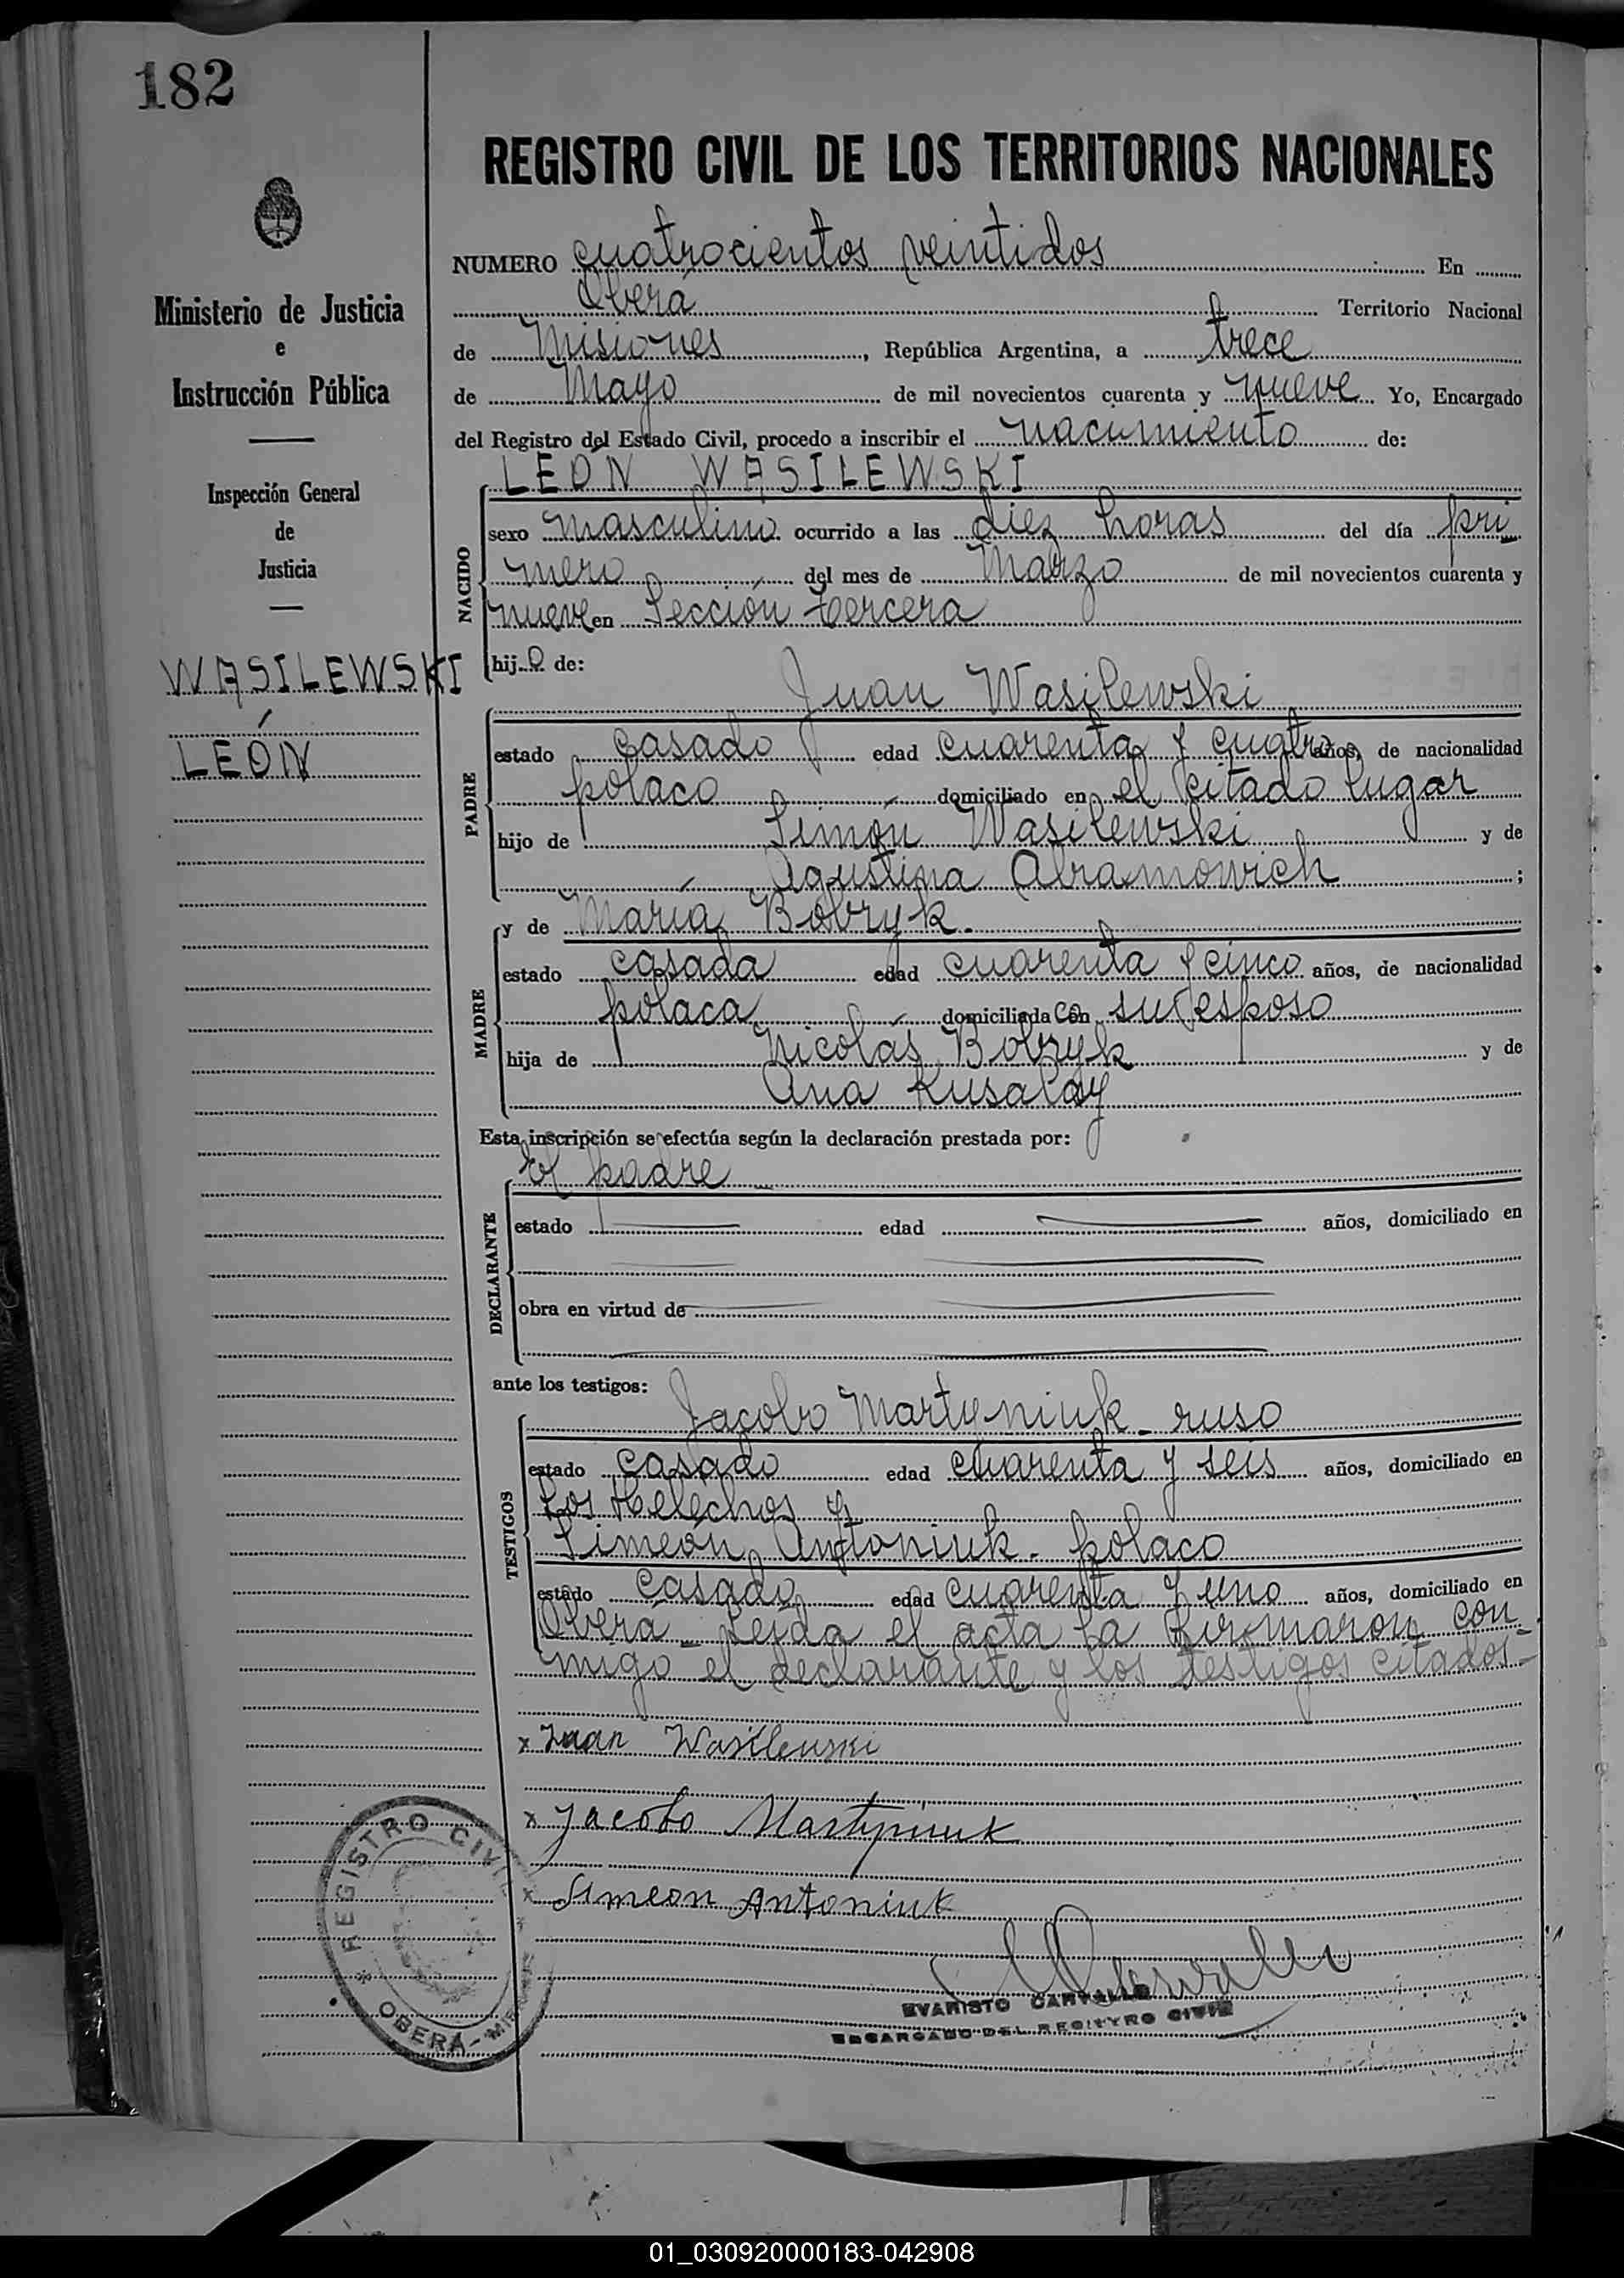 182
REGISTRO CIVIL DE LOS TERRITORIOS NACIONALES
Ministerio de Justicia
e
Instrucción Pública
Inspección General
de
Justicia
WASILEWSKI
LEÓN
NUMERO cuatrocientos veintidos En
Oberá Territorio Nacional
de Misiones, República Argentina, a trece
de Mayo de mil novecientos cuarenta y nueve Yo, Encargado
del Registro del Estado Civil, procedo a inscribir el nacimiento de:
LEÓN WASILEWSKI
NACIDO
sexo masculino ocurrido a las diez horas del día pri
mero del mes de Marzo de mil novecientos cuarenta y
nueve en Sección tercera
hijo de:
Juan Wasilewski
PADRE
estado casado edad cuarenta y cuatro años, de nacionalidad
polaco domiciliado en el citado lugar
hijo de Simón Wasilewski y de
Agustina Abramowich;
y de María Bobryk.
MADRE
estado casada edad cuarenta y cinco años, de nacionalidad
polaca domiciliada con su esposo
hija de Nicolás Bobryk y de
Ana Kusalay
Esta inscripción se efectúa según la declaración prestada por:
El padre
DECLARANTE
estado edad años, domiciliado en
obra en virtud de
ante los testigos:
Jacobo Martyniuk - ruso
TESTIGOS
estado casado edad cuarenta y seis años, domiciliado en
Los Helechos y
Simeón Antoniuk - polaco
estado casado edad cuarenta y uno años, domiciliado en
Oberá - Leída el acta la firmaron con
migo el declarante y los testigos citados -
x Juan Wasilewski
x Jacobo Martyniuk
x Simeon Antoniuk
EVARISTO CARVALLO
ENCARGADO DEL REGISTRO CIVIL
REGISTRO CIVIL
OBERÁ -
01_030920000183-042908